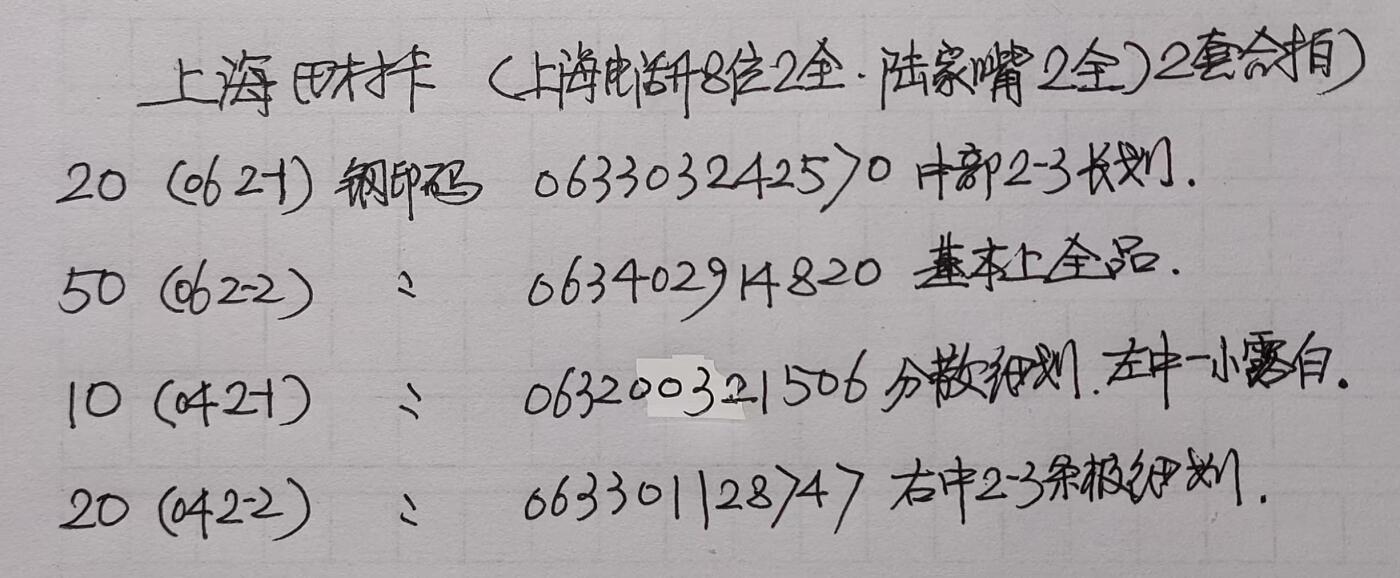 上海田村卡（上海电话升8位2全·陆家嘴2全）2套合拍）
20（062-1）钢印码 063303242570 中部2-3长划.
50（062-2） 〃 063402914820 基本上全品.
10（042-1） 〃 063200321506 分散细划.左中一小露白.
20（042-2） 〃 063301128747 右中2-3条极细划.